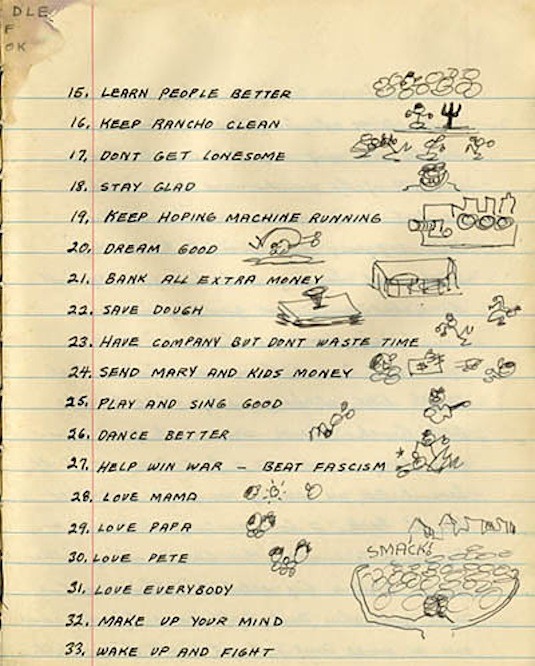 DLE
F
OK
15. LEARN PEOPLE BETTER
16. KEEP RANCHO CLEAN
17. DONT GET LONESOME
18. STAY GLAD
19. KEEP HOPING MACHINE RUNNING
20. DREAM GOOD
21. BANK ALL EXTRA MONEY
22. SAVE DOUGH
23. HAVE COMPANY BUT DONT WASTE TIME
24. SEND MARY AND KIDS MONEY
25. PLAY AND SING GOOD
26. DANCE BETTER
27. HELP WIN WAR – BEAT FASCISM
28. LOVE MAMA
29. LOVE PAPA
30. LOVE PETE
SMACK!
31. LOVE EVERYBODY
32. MAKE UP YOUR MIND
33. WAKE UP AND FIGHT